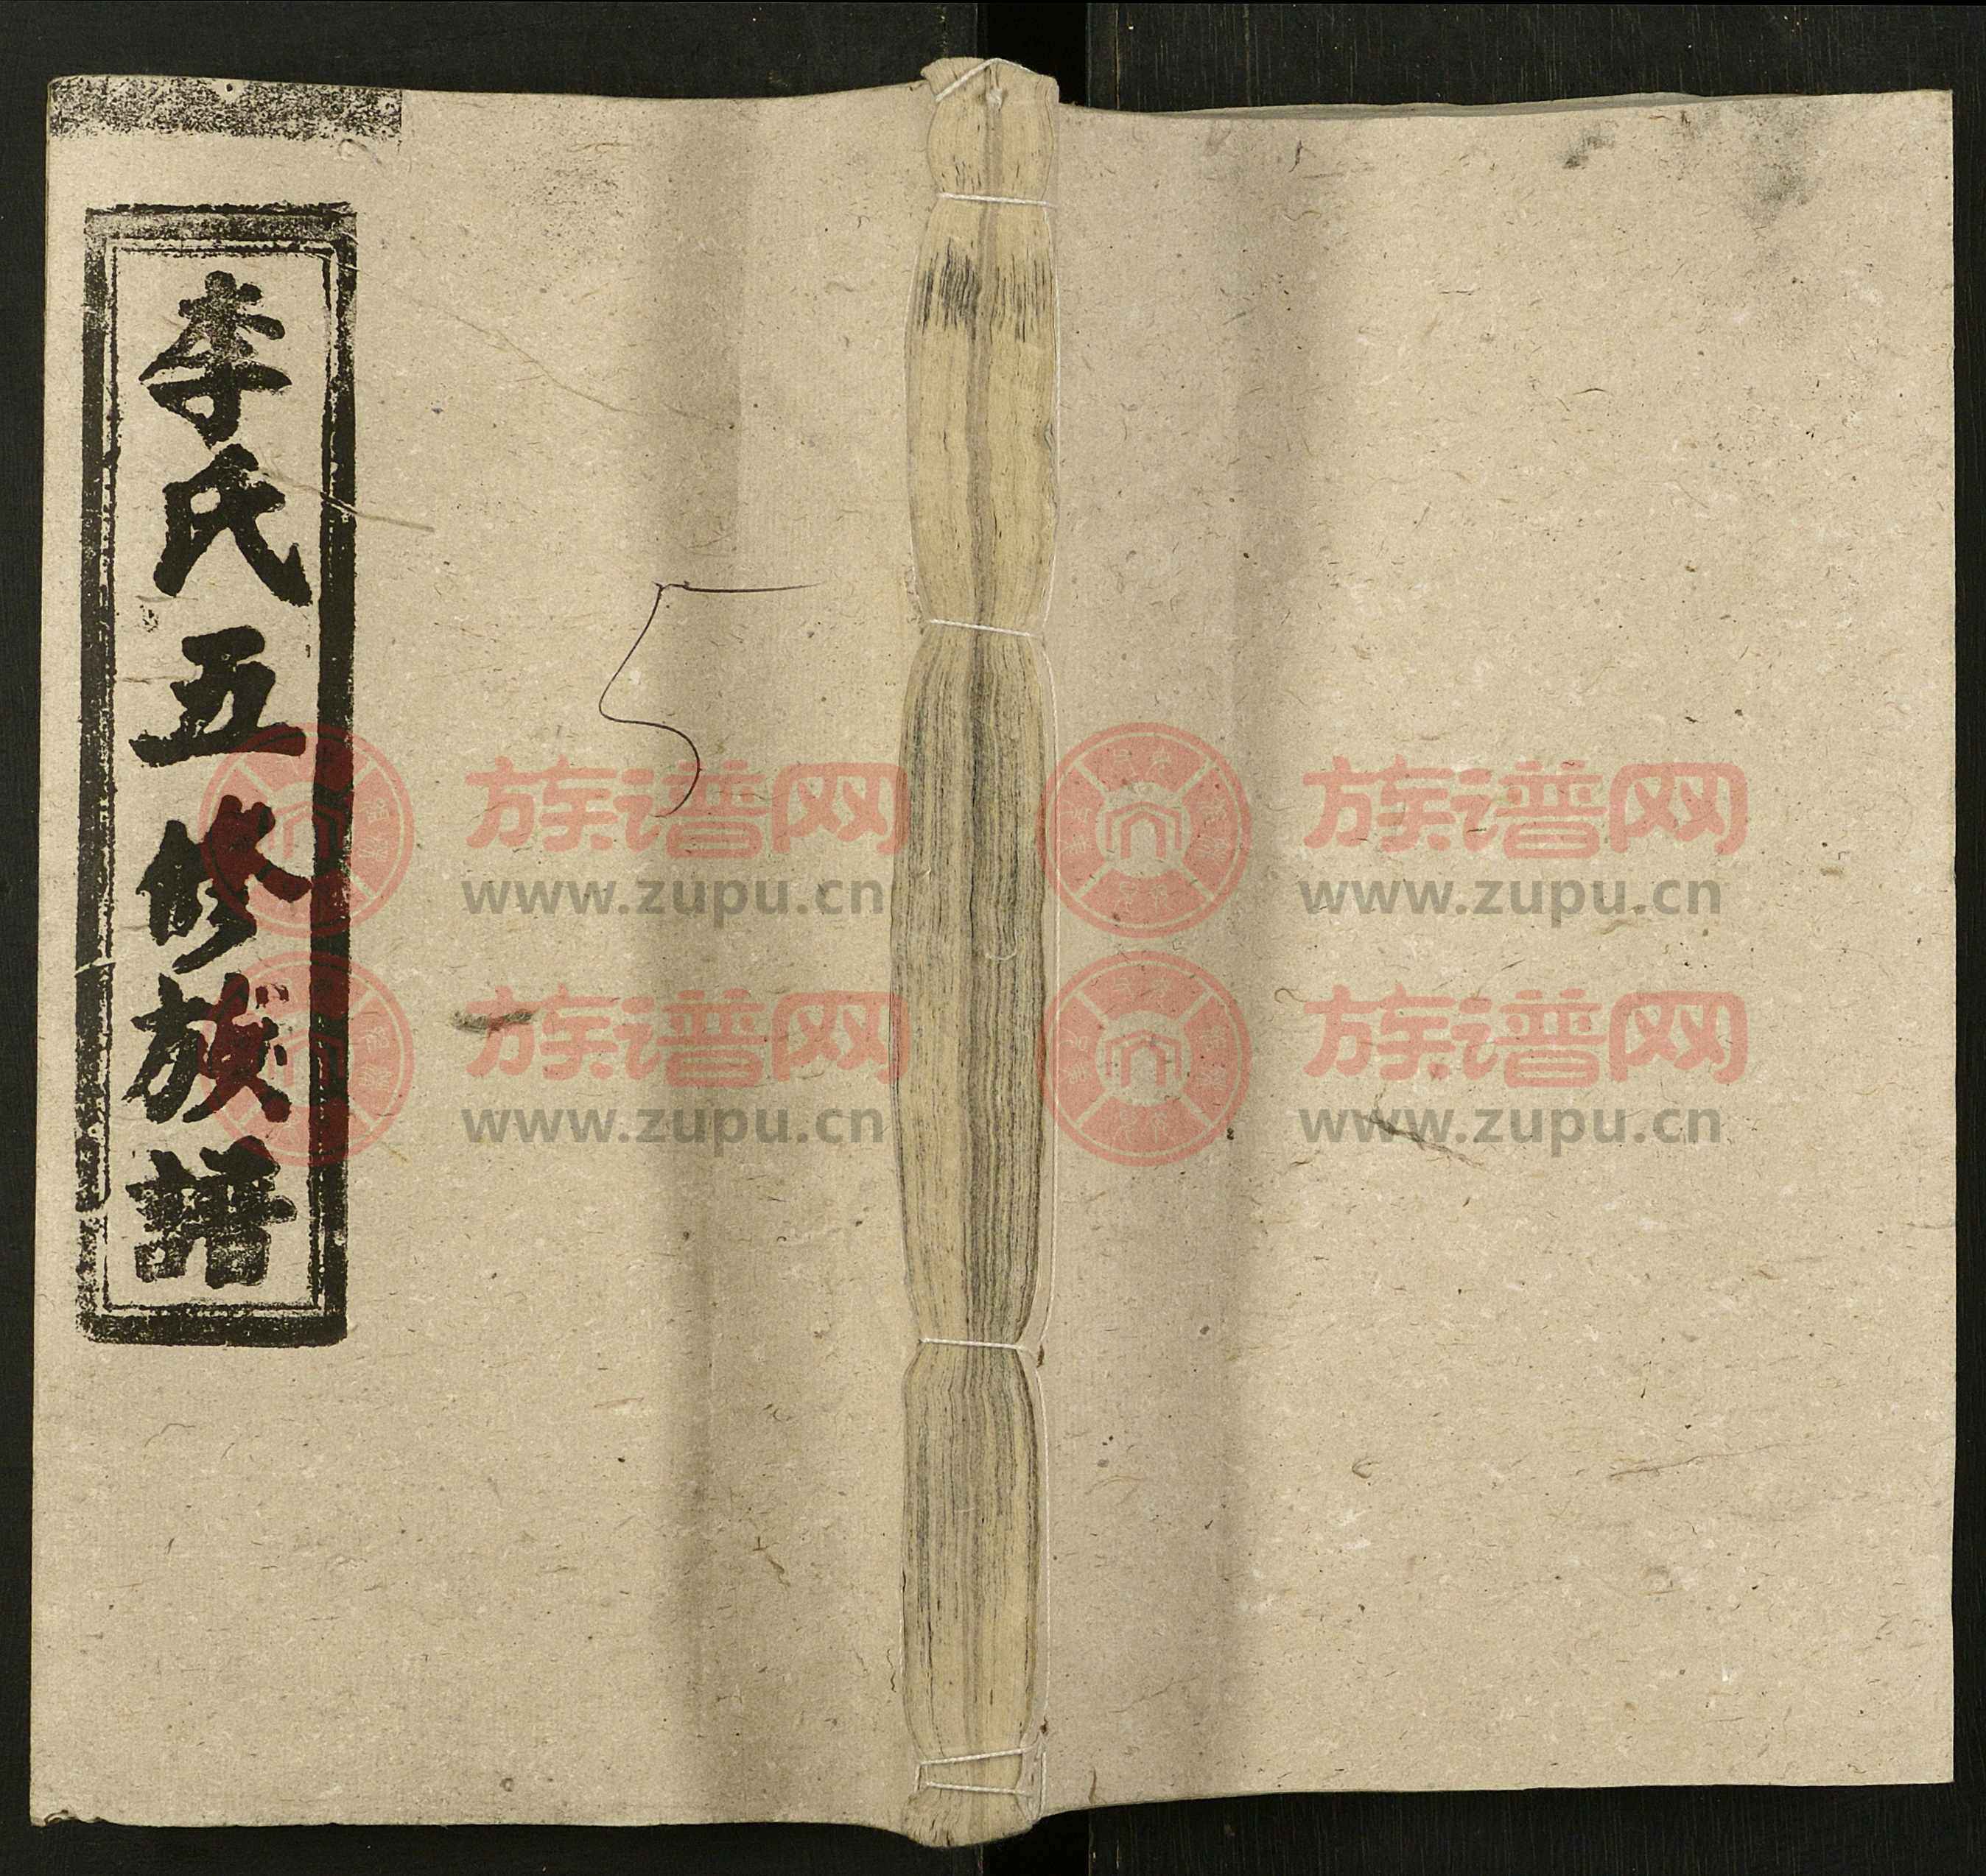 李氏五修族譜
5
族谱网
www.zupu.cn
族谱网
www.zupu.cn
族谱网
www.zupu.cn
族谱网
www.zupu.cn